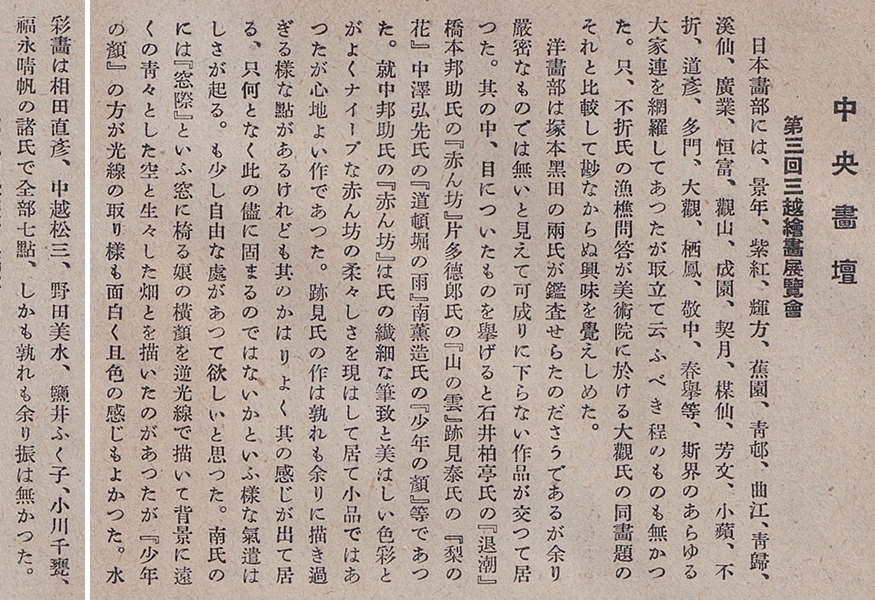 中央畵壇
第三回三越繪畫展覽會
日本畵部には、景年、紫紅、輝方、蕉園、靑邨、曲江、靑歸、
溪仙、廣業、恒富、觀山、成園、契月、楳仙、芳文、小蘋、不
折、道彥、多門、大觀、栖鳳、敬中、春擧等、斯界のあらゆる
大家連を網羅してあつたが取立て云ふべき程のものも無かつ
た。只、不折氏の漁樵問答が美術院に於ける大觀氏の同畵題の
それと比較して尠なからぬ興味を覺えしめた。
洋畵部は塚本黑田の兩氏が鑑査せらたのださうであるが余り
嚴密なものでは無いと見えて可成りに下らない作品が交つて居
つた。其の中、目についたものを擧げると石井柏亭氏の『退潮』
橋本邦助氏の『赤ん坊』片多德郞氏の『山の雲』跡見泰氏の『梨の
花』中澤弘先氏の『道頓堀の雨』南薰造氏の『少年の顏』等であつ
た。就中邦助氏の『赤ん坊』は氏の纎細な筆致と美はしい色彩と
がよくナイーブな赤ん坊の柔々しさを現はして居て小品ではあ
つたが心地よい作であつた。跡見氏の作は孰れも余りに描き過
ぎる樣な點があるけれども其のかはりよく其の感じが出て居
る、只何となく此の儘に固まるのではないかといふ樣な氣遣は
しさが起る。も少し自由な處があつて欲しいと思つた。南氏の
には『窓際』といふ窓に椅る娘の橫顏を逆光線で描いて背景に遠
くの靑々とした空と生々した畑とを描いたのがあつたが『少年
の顏』の方が光線の取り樣も面白く且色の感じもよかつた。水
彩畵は相田直彥、中越松三、野田美水、鹽井ふく子、小川千甕、
福永晴帆の諸氏で全部七點、しかも孰れも余り振は無かつた。